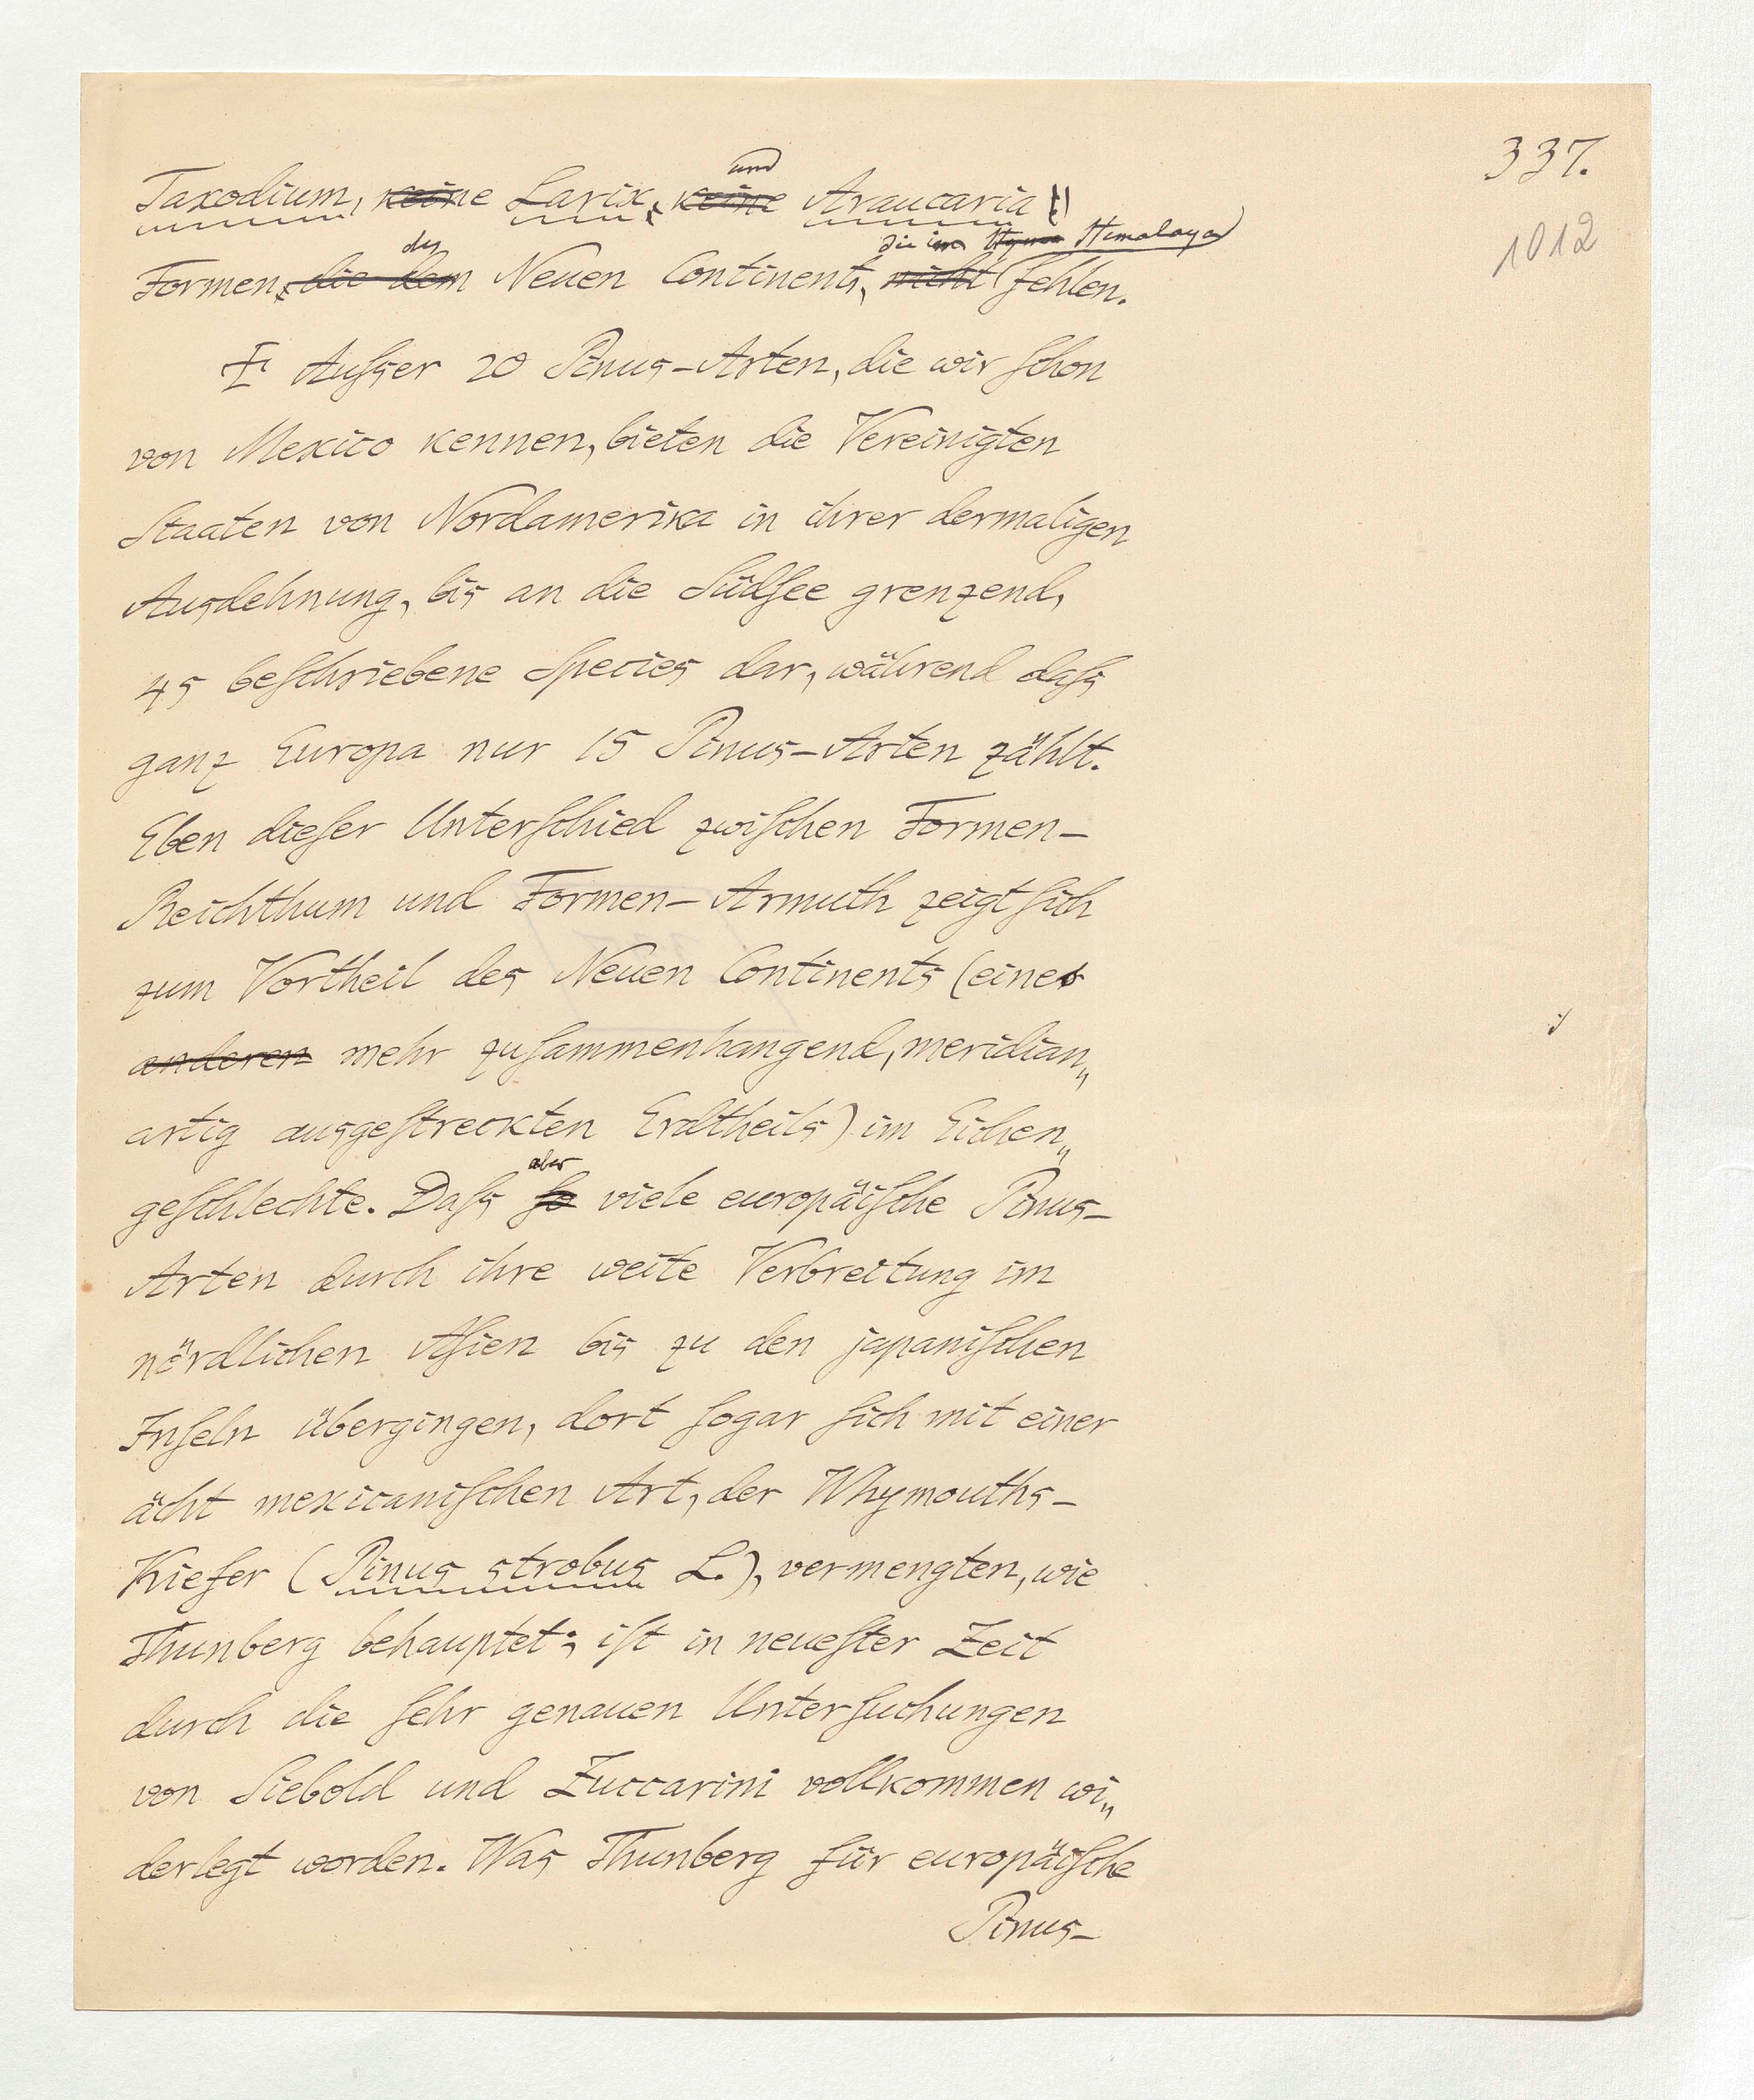 337.
1012
und
Taxodium, keine Larix, keine Araucaria
des die im Himalaya
Formen, die dem Neuen Continents, nicht fehlen.
Ausser 20 Pinus-Arten, die wir schon
von Mexico kennen, bieten die Vereinigten
Staaten von Nordamerika in ihrer dermaligen
Ausdehnung, bis an die Südsee grenzend,
45 beschriebene Species dar, während dass
ganz Europa nur 15 Pinus-Arten zählt.
Eben dieser Unterschied zwischen Formen-
Reichthum und Formen-Armuth zeigt sich
zum Vortheil des Neuen Continents (eines
anderen mehr zusammenhangend, meridian„
artig ausgestreckten Erdtheils) im Eichen„
aber
geschlechte. Dass so viele europäische Pinus-
Arten durch ihre weite Verbreitung im
nördlichen Asien bis zu den japanischen
Inseln übergingen, dort sogar sich mit einer
ächt mexicanischen Art, der Whymouths-
Kiefer (Pinus strobus L.), vermengten, wie
Thunberg behauptet; ist in neuester Zeit
durch die sehr genauen Untersuchungen
von Siebold und Zuccarini vollkommen wi„
derlegt worden. Was Thunberg für europäische
Pinus-